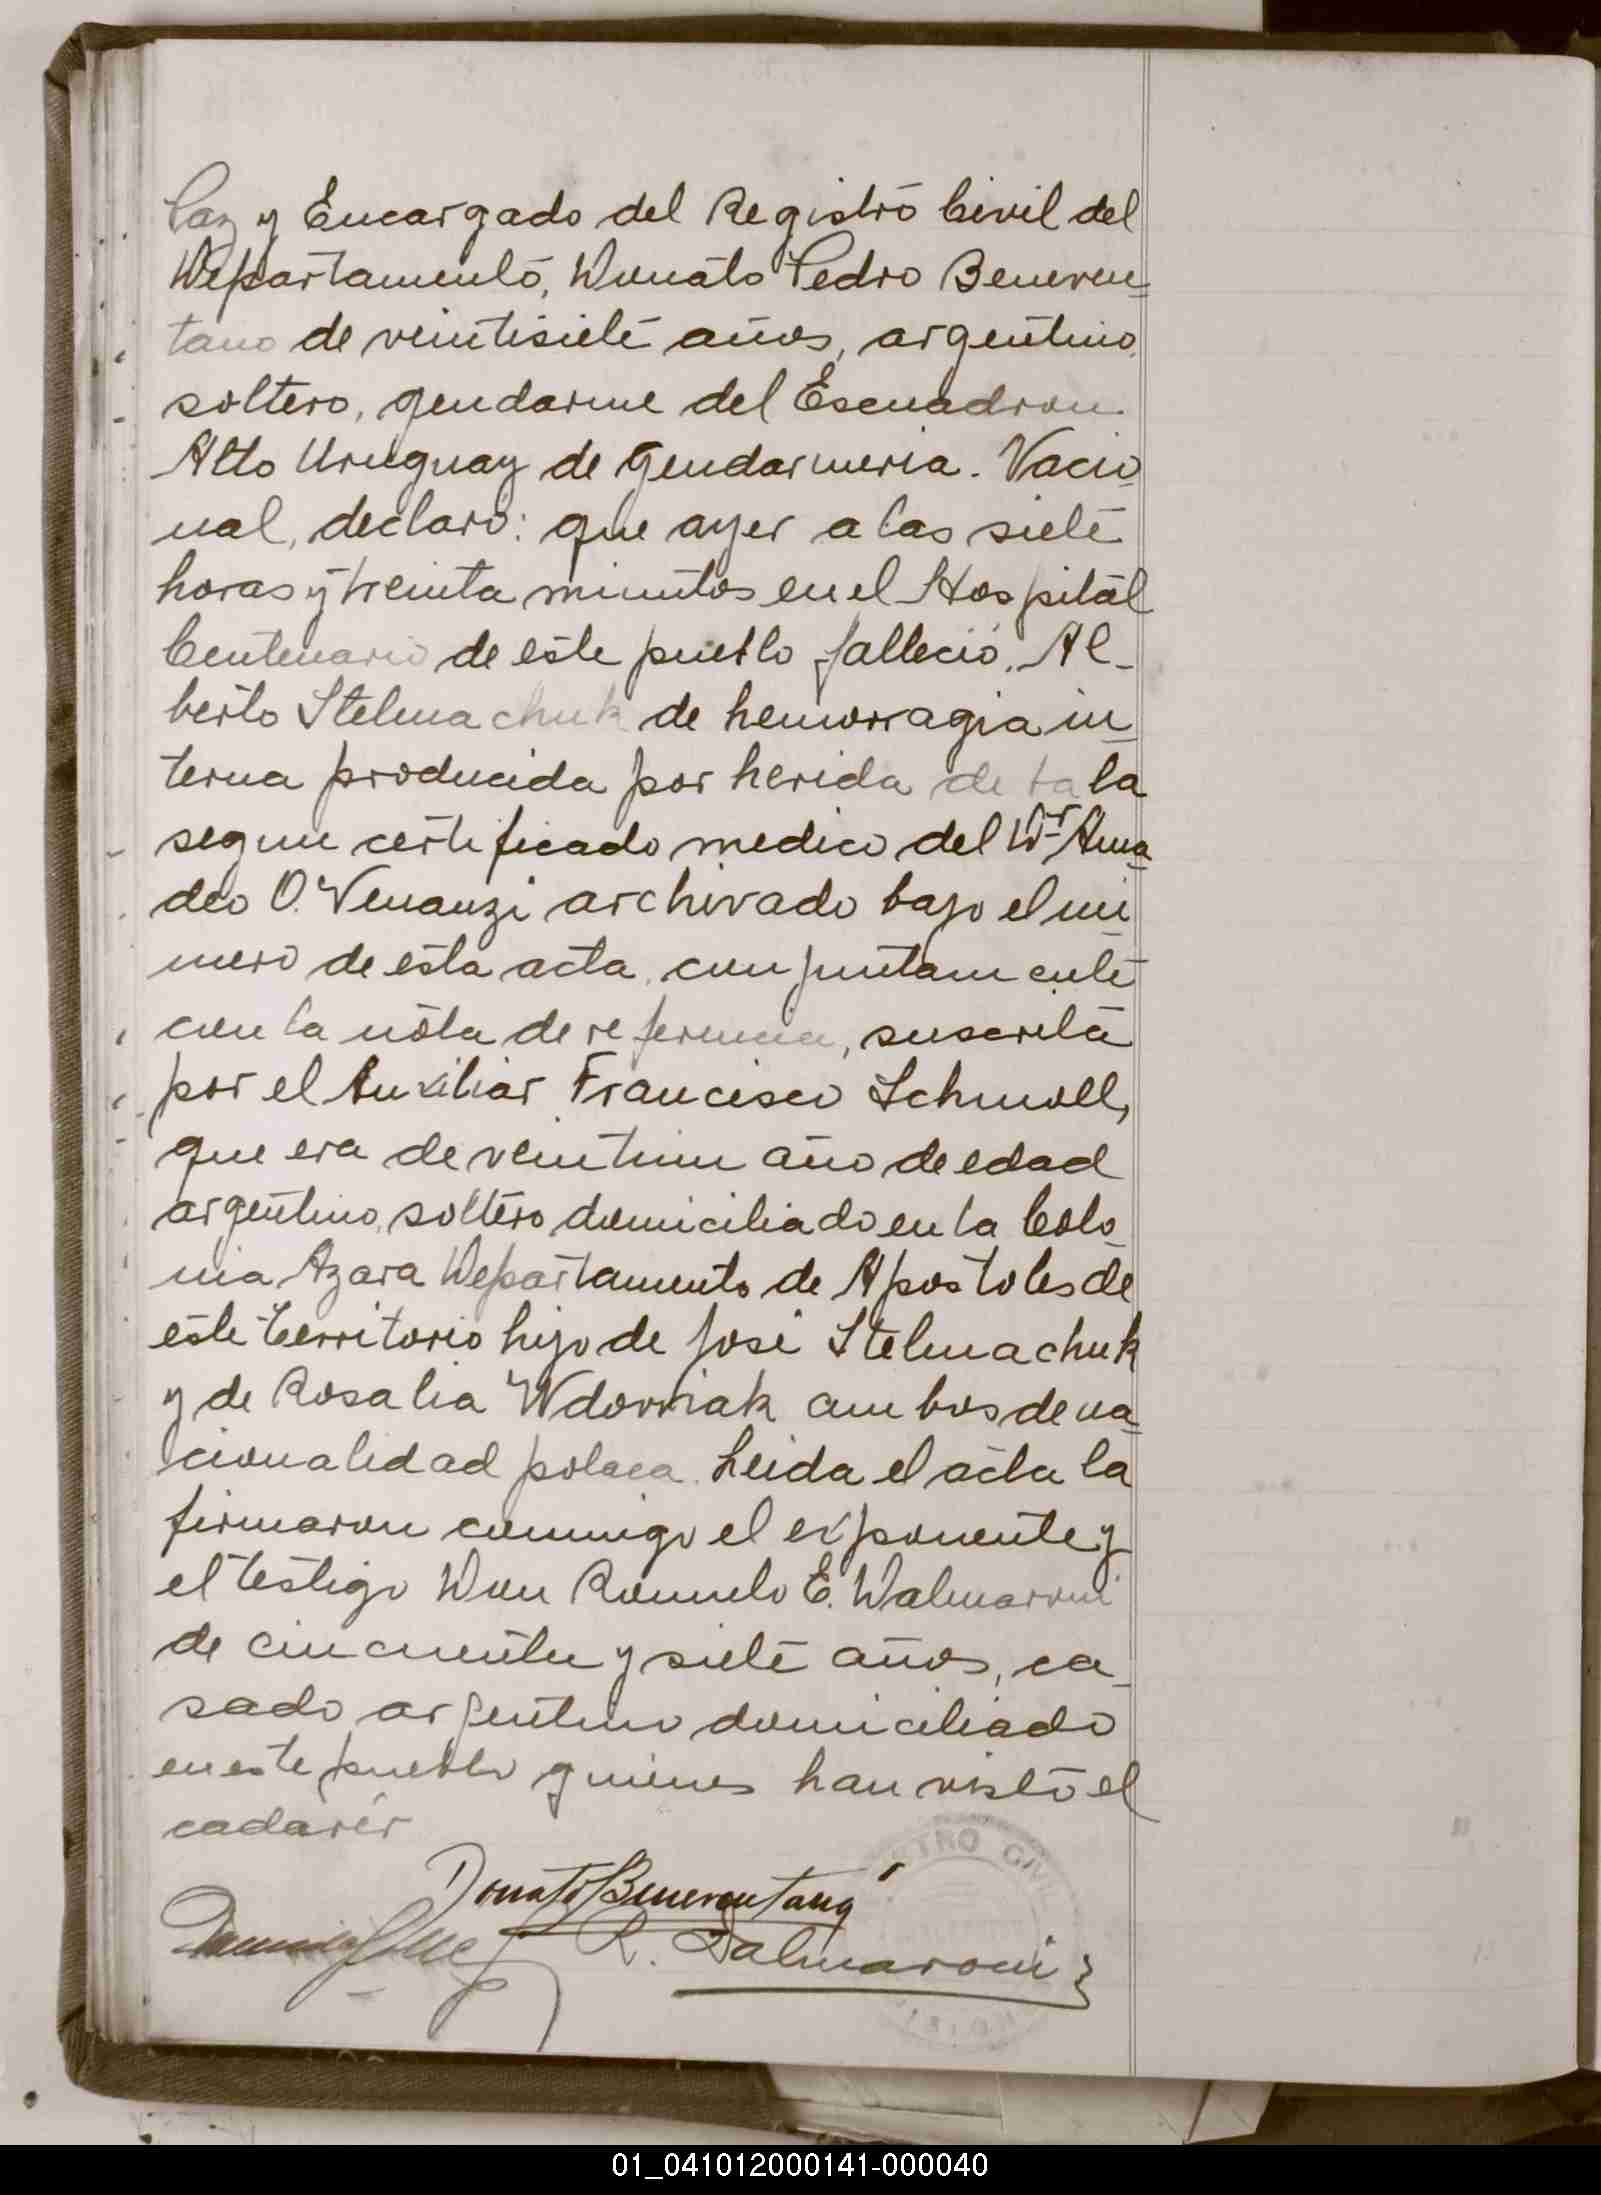 Paz y Encargado del Registro Civil del
Departamento, Donato Pedro Beneven-
tano de veintisiete años, argentino,
soltero, gendarme del Escuadron
Alto Uruguay de Gendarmeria. Nacio-
nal, declaró: que ayer a las siete
horas y treinta minutos en el Hospital
Centenario de este pueblo falleció, Al-
berto Stelmachuk de hemorragia in-
terna producida por herida de bala
segun certificado medico del Dr Ama-
deo O. Venanzi archivado bajo el nú-
mero de esta acta, conjuntamente
con la nota de referencia, suscrita
por el Auxiliar Francisco Schmoll,
que era de veintiun año de edad
argentino, soltero domiciliado en la Colo-
nia Azara Departamento de Apostoles de
este Territorio hijo de José Stelmachuk
y de Rosalia Wdowiak ambos de na-
cionalidad polaca. Leida el acta la
firmaron conmigo el exponente y
el testigo Don Romulo E. Dalmaroni
de cincuenta y siete años, ca-
sado argentino domiciliado
en este pueblo quienes han visto el
cadaver
Donato Beneventano
R. Dalmaroni
01_041012000141-000040